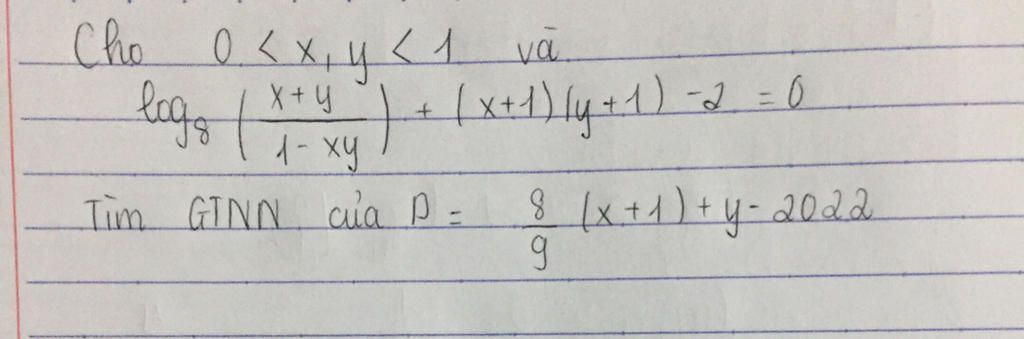 Cho 0 < x, y < 1 và
log₈ ( (x+y)/(1-xy) ) + (x+1)(y+1) -2 = 0
Tìm GTNN của P = 8/9 (x+1) + y - 2022